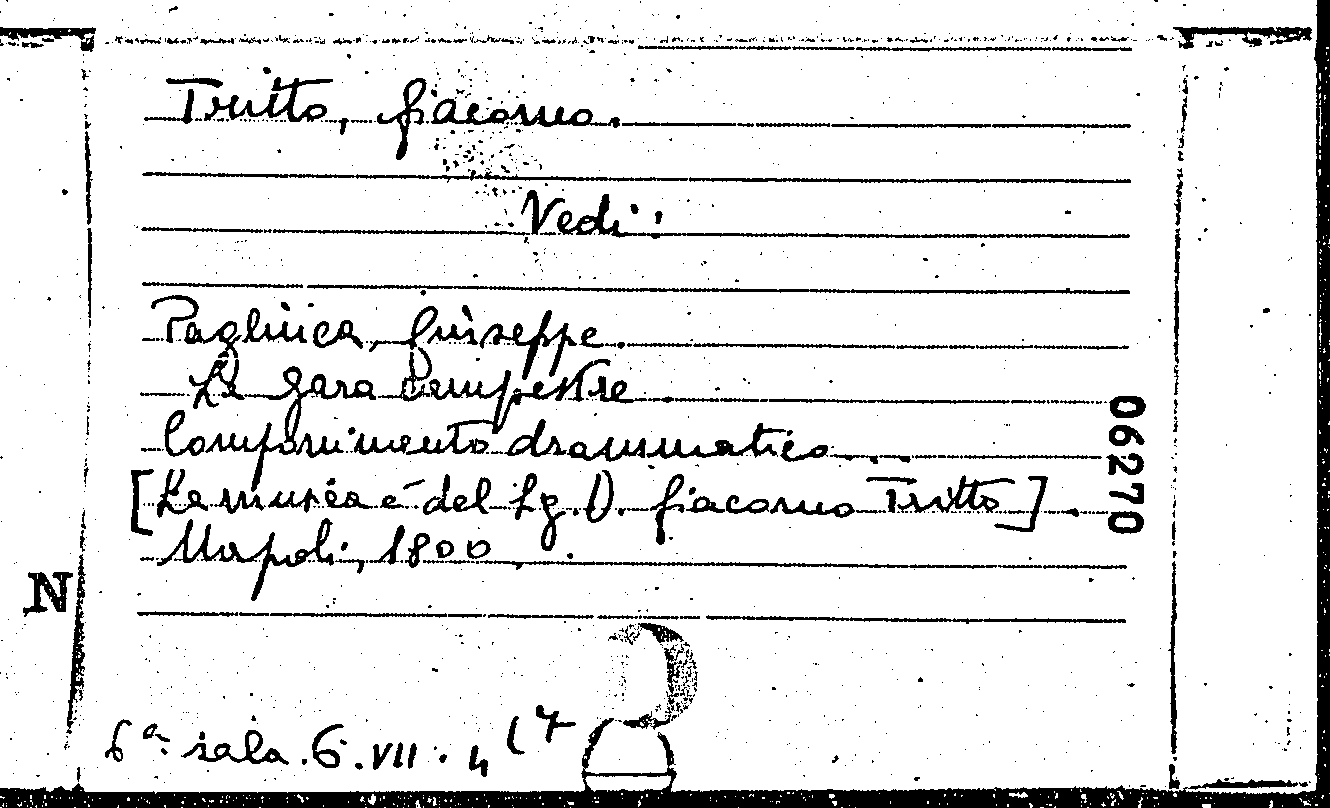 Tritto, Giacomo.
Vedi:
Pagliuca, Giuseppe.
La gara campestre.
Componimento drammatico...
[La musica è del Sg. D. Giacomo Tritto].
Napoli, 1800.
06270
N
6ª sala. 6. VII. 4 (7